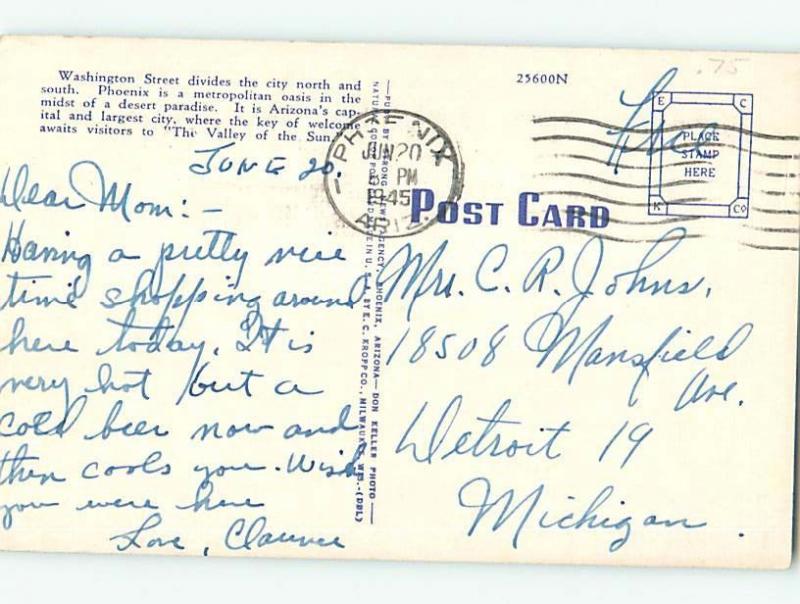 Washington Street divides the city north and
south. Phoenix is a metropolitan oasis in the
midst of a desert paradise. It is Arizona's cap-
ital and largest city, where the key of welcome
awaits visitors to "The Valley of the Sun."
JUNE 20.
Dear Mom:-
Having a pretty nice
time shopping around
here today. It is
very hot but a
cold beer now and
then cools you. Wish
you were here
Love, Clarence
NEWS AGENCY, PHOENIX, ARIZONA — DON KELLER PHOTO —
BY E. C. KROPP CO., MILWAUKEE, WIS.-(DBL)
PHOENIX
JUN 20
PM
1945
ARIZ.
25600N
.75
Free
E C
PLACE
STAMP
HERE
K CO
POST CARD
Mrs. C. R. Johns,
18508 Mansfield
Ave.
Detroit 19
Michigan.